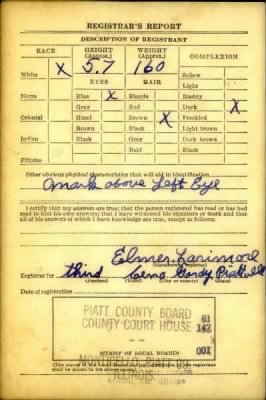 REGISTRAR'S REPORT
DESCRIPTION OF REGISTRANT
RACE HEIGHT (Approx.) WEIGHT (Approx.) COMPLEXION
White X 5.7 160 Sallow
EYES HAIR Light
Negro Blue X Blonde Ruddy
Gray Red Dark X
Oriental Hazel Brown X Freckled
Brown Black Light brown
Indian Black Gray Dark brown
Bald Black
Filipino
Other obvious physical characteristics that will aid in identification
Mark above Left Eye
I certify that my answers are true; that the person registered has read or has had
read to him his own answers; that I have witnessed his signature or mark and that
all of his answers of which I have knowledge are true, except as follows:
Elmer Larimore
Registrar for third Piatt Ill
(Precinct) (City or county)
Date of registration
PIATT COUNTY BOARD 61
COUNTY COURT HOUSE 147
001
(STAMP OF LOCAL BOARD)
MONTICELLO, PIATT CO.
ILLINOIS
shall be placed in the above space.)